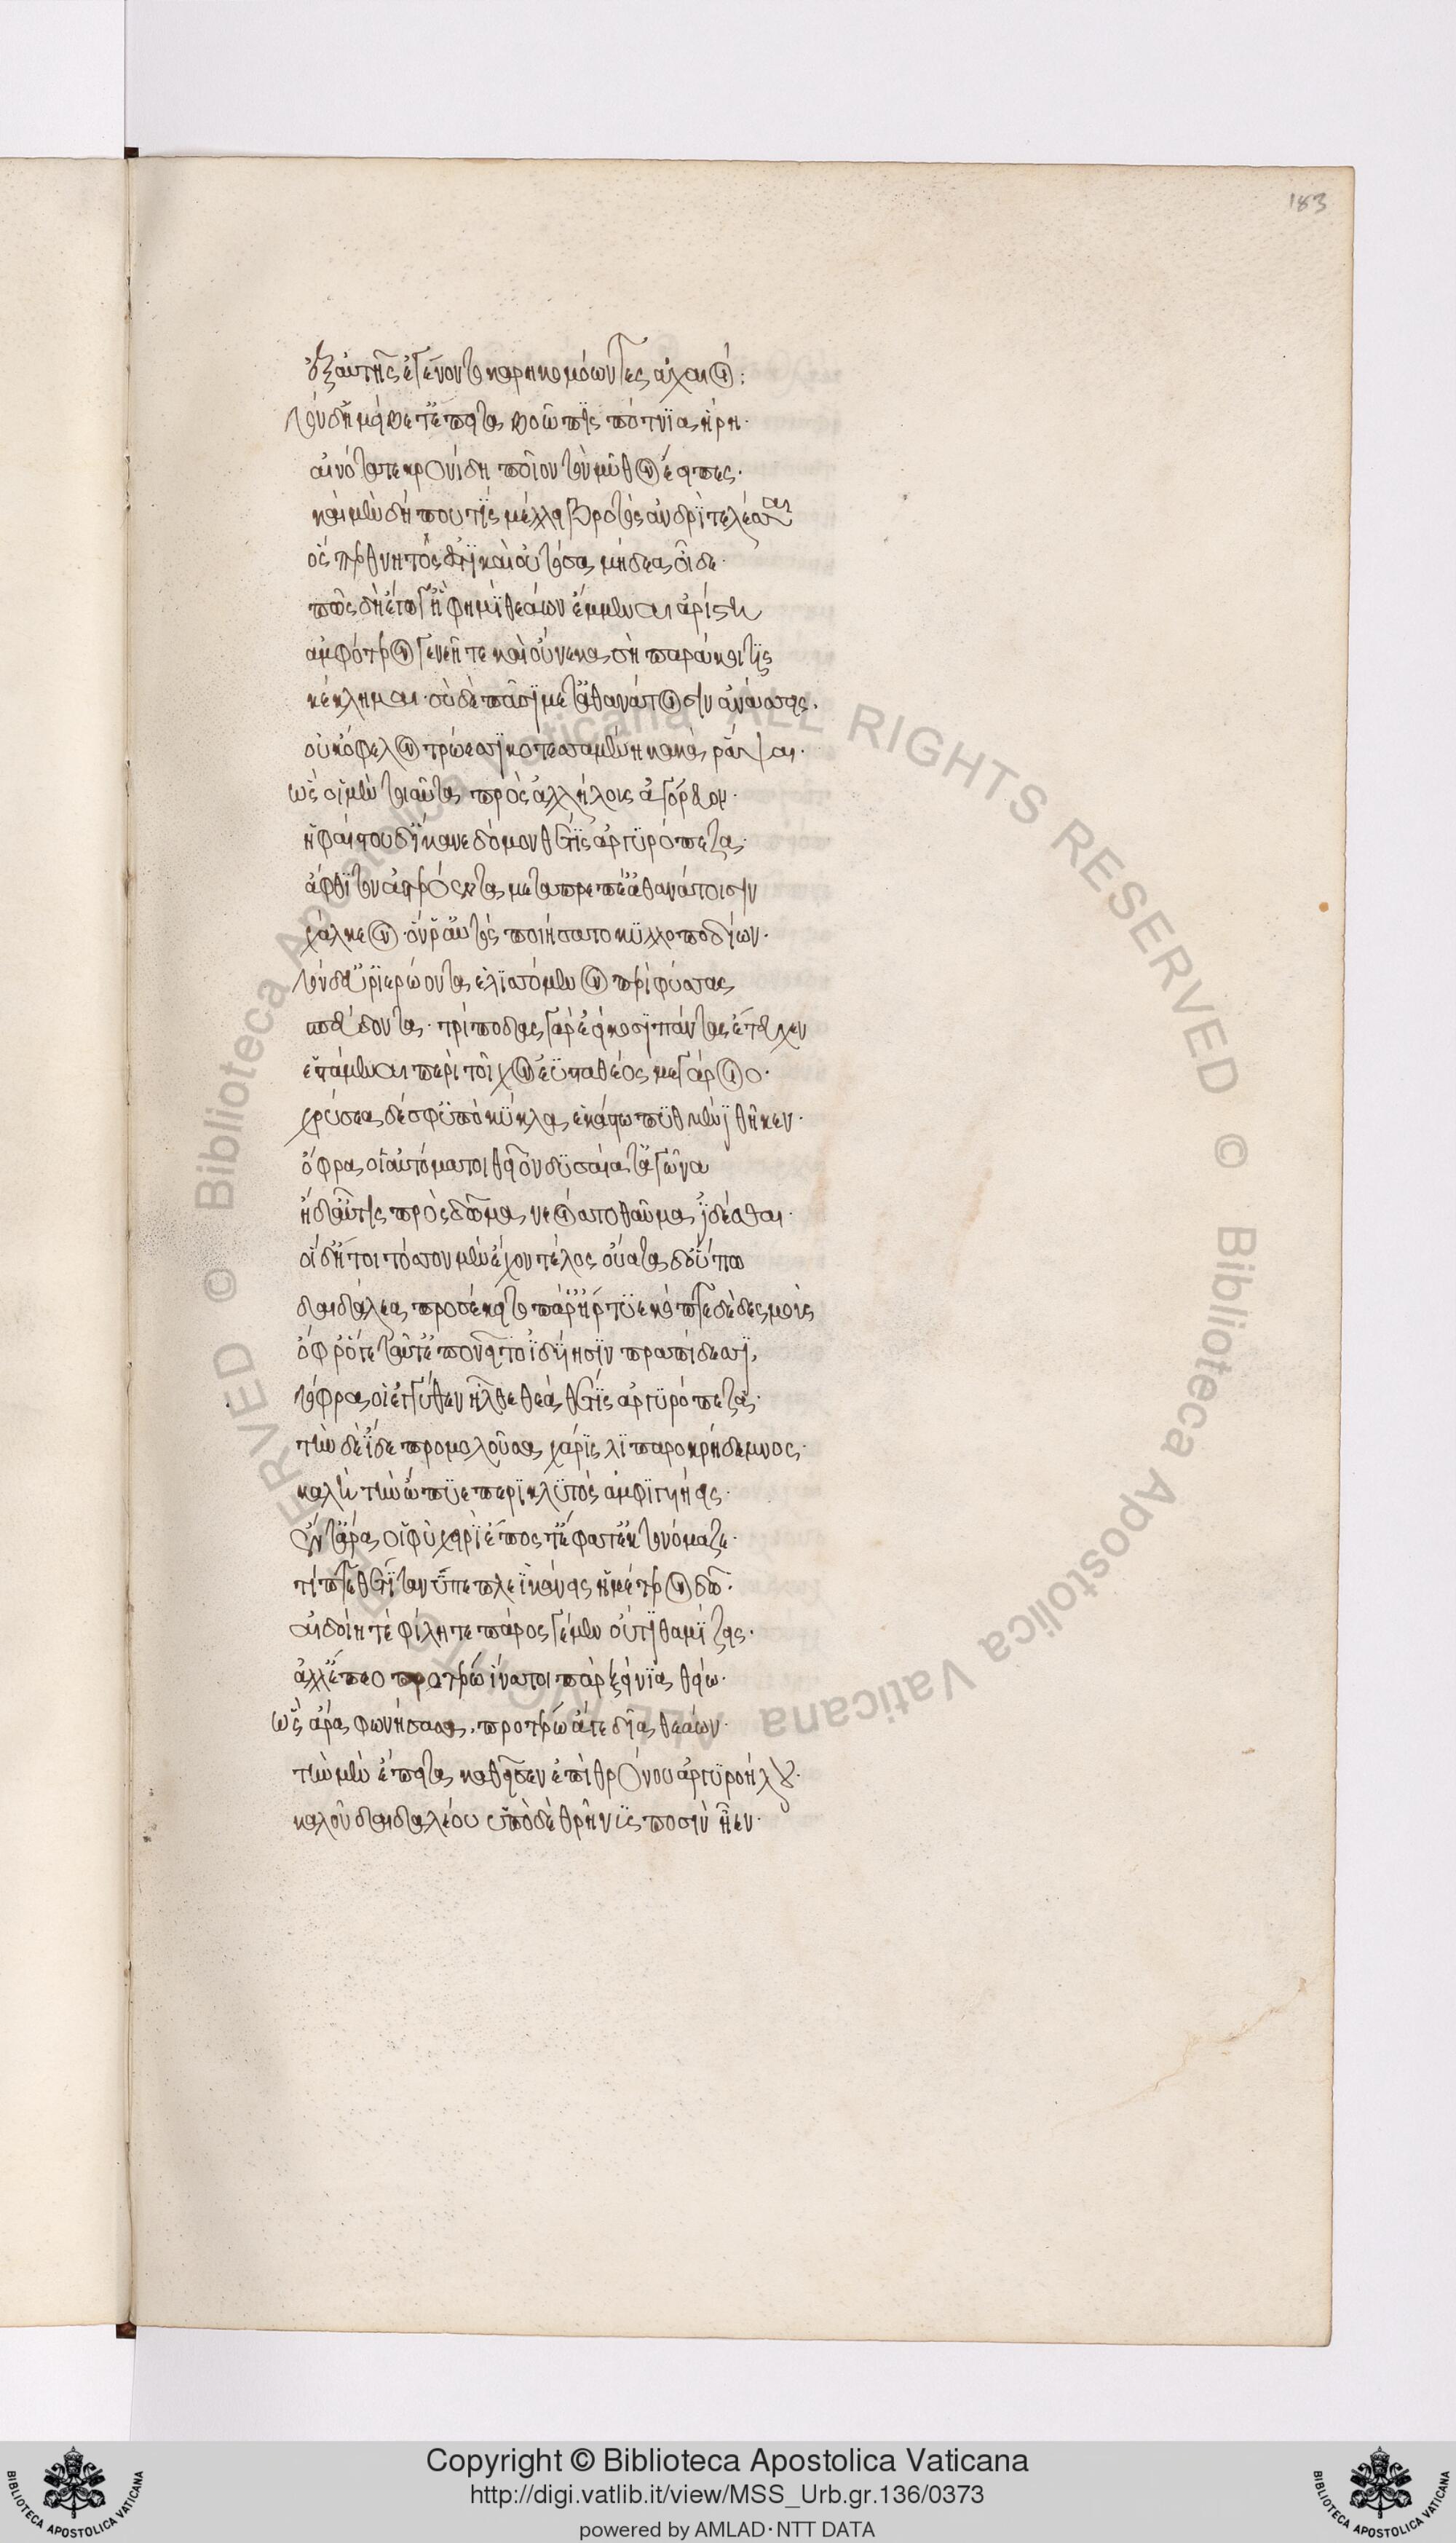 183
ἐξ αὐτῆς ἐγένοντο καρηκομόωντες ἀχαιοί:
τὸν δ' ἠμείβετ' ἔπειτα βοῶπις πότνια ἥρη·
αἰνότατε κρονίδη ποῖον τὸν μῦθον ἔειπες·
καὶ μὲν δή που τὶς μέλλει βροτὸς ἀνδρὶ τελέσσαι
ὅς περ θνητός τ' ἐστὶ καὶ οὐ τόσα μήδεα οἶδε·
πῶς δὴ ἔγωγ' ἥ φημι θεάων ἔμμεναι ἀρίστη
ἀμφότερον γενεῇ τε καὶ οὕνεκα σὴ παράκοιτις
κέκλημαι· σὺ δὲ πᾶσι μετ' ἀθανάτοισιν ἀνάσσεις.
οὐκ ὄφελον τρώεσσι κοτεσσαμένη κακὰ ῥάψαι·
ὣς οἱ μὲν τοιαῦτα πρὸς ἀλλήλους ἀγόρευον·
ἡφαίστου δ' ἵκανε δόμον θέτις ἀργυρόπεζα·
ἄφθιτον ἀστερόεντα μεταπρεπέ' ἀθανάτοισιν
χάλκεον· ὅν ῥ' αὐτὸς ποιήσατο κυλλοποδίων·
τὸν δ' εὗρ' ἱδρώοντα ἑλισσόμενον περὶ φύσας
σπεύδοντα· τρίποδας γὰρ ἐείκοσι πάντας ἔτευχεν
ἑστάμεναι περὶ τοῖχον ἐϋσταθέος μεγάροιο·
χρύσεα δέ σφ' ὑπὸ κύκλα ἑκάστῳ πυθμένι θῆκεν·
ὄφρα οἱ αὐτόματοι θεῖον δυσαίατ' ἀγῶνα
ἠδ' αὖτις πρὸς δῶμα νεοίατο θαῦμα ἰδέσθαι·
οἱ δ' ἤτοι τόσσον μὲν ἔχον τέλος οὔατα δ' οὔπω
δαιδάλεα προσέκειτο τά ῥ' ἤρτυε κόπτε δὲ δεσμούς
ὄφρ' ὅ γε ταῦτ' ἐπονεῖτο ἰδυίῃσιν πραπίδεσσι.
τόφρα οἱ ἐγγύθεν ἦλθε θεὰ θέτις ἀργυρόπεζα·
τὴν δὲ ἴδε προμολοῦσα χάρις λιπαροκρήδεμνος·
καλὴ τὴν ὤπυε περικλυτὸς ἀμφιγυήεις·
ἔν τ' ἄρα οἱ φῦ χειρὶ ἔπος τ' ἔφατ' ἔκ τ' ὀνόμαζε·
τίπτε θέτι τανύπεπλε ἱκάνεις ἡμέτερον δῶ·
αἰδοίη τε φίλη τε πάρος γε μὲν οὔτι θαμίζεις·
ἀλλ' ἕπεο προτέρω ἵνα τοι πὰρ ξείνια θείω·
ὣς ἄρα φωνήσασα, προτέρω ἄγε δῖα θεάων·
τὴν μὲν ἔπειτα καθεῖσεν ἐπὶ θρόνου ἀργυροήλου·
καλοῦ δαιδαλέου ὑπὸ δὲ θρῆνυς ποσὶν ἦεν·
Copyright © Biblioteca Apostolica Vaticana
http://digi.vatlib.it/view/MSS_Urb.gr.136/0373
powered by AMLAD·NTT DATA
BIBLIOTECA APOSTOLICA VATICANA
BIBLIOTECA APOSTOLICA VATICANA
© Biblioteca Apostolica Vaticana ALL RIGHTS RESERVED © Biblioteca Apostolica Vaticana ALL RIGHTS RESERVED